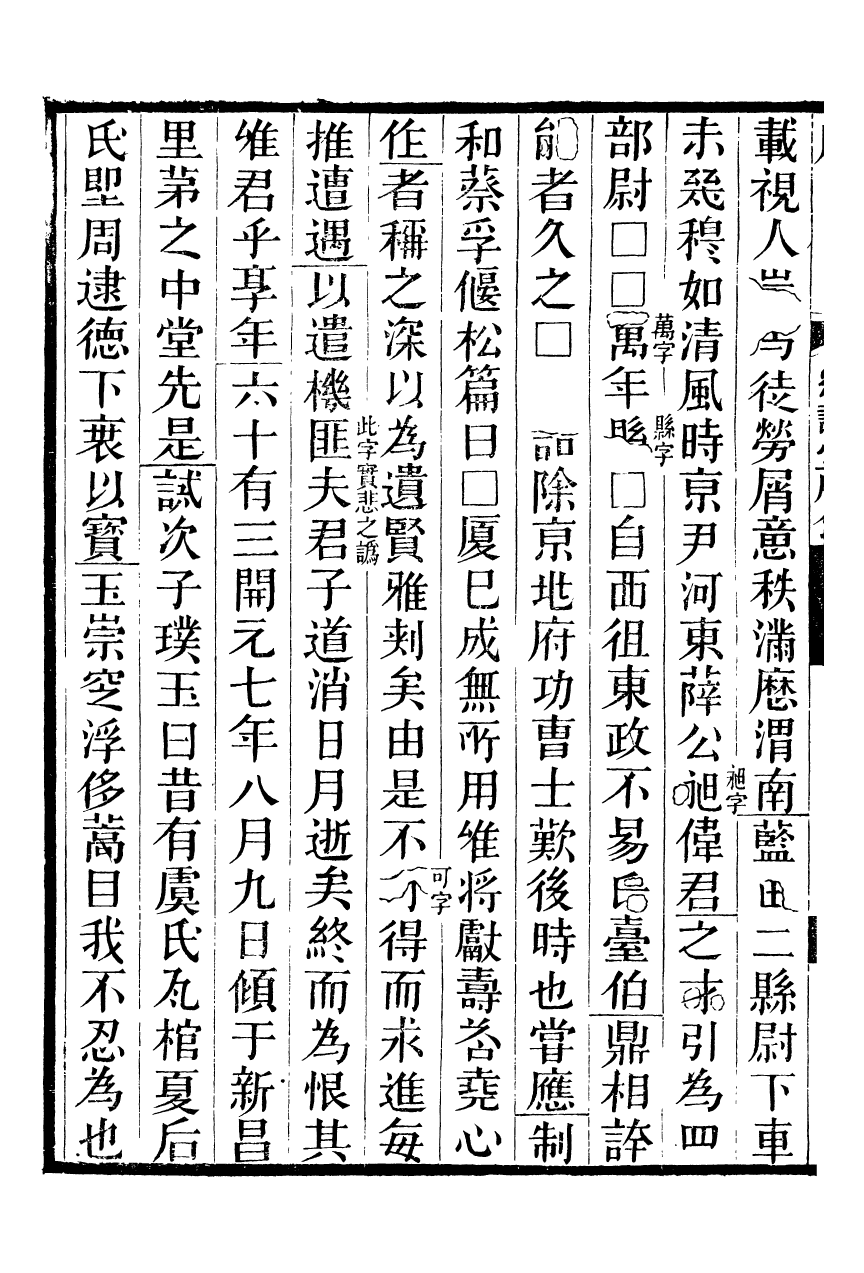 載視人豈 徒勞屑意秩滿歷渭南藍田二縣尉下車
未幾穆如清風時京尹河東薛公昶偉君之才引為四
昶字
部尉□□萬年縣□自西徂東政不易民臺伯鼎相誶
萬字
縣字
能者久之□ 除京地府功曹士歎後時也嘗應制
和蔡孚偃松篇曰□厦已成無所用唯將獻壽答堯心
作者稱之深以為遺賢雅刺矣由是不可得而求進每
可字
推遭遇以遣機匪夫君子道消日月逝矣終而為恨其
此字實悲之譌
唯君乎享年六十有三開元七年八月九日傾于新昌
里苐之中堂先是誡次子璞玉曰昔有虞氏瓦棺夏后
氏堲周逮德下衰以寶玉崇窆浮侈蒿目我不忍為也